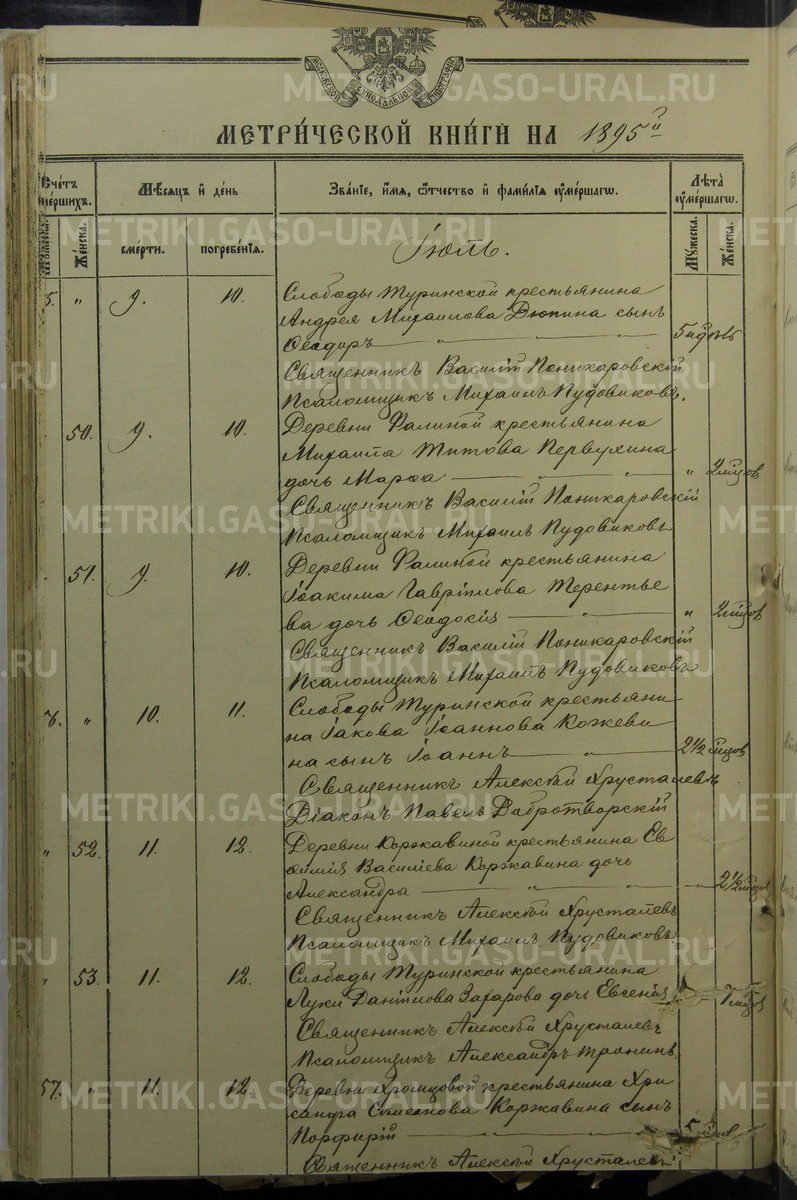 МЕТРИЧЕСКОЙ КНИГИ НА 1895й
Счетъ умершихъ. Мѣсяцъ и день Званіе, имя, отчество и фамилія умершаго. Лѣта умершаго.
Мужеска. Женска. смерти. погребенія. Іюль. Мужеска. Женска.
5. " 9. 10. Слободы Туринской крестьянина
Андрея Михаилова Дюпина сынъ
Ѳеодоръ
Священникъ Василій Поникаровскій
Псаломщикъ Михаилъ Пудовиковъ.
50. 9. 10. Деревни Фалиной крестьянина
Михаила Титова Первухина
дочь Марѳа " " " 2 мѣцов
Священникъ Василій Поникаровскій
Псаломщикъ Михаилъ Пудовиковъ
51. 9. 10. Деревни Фалиной крестьянина
Іоакима Гавріилова Терентье
ва дочь Ѳеодосія " " 2 мѣцов
Священникъ Василій Поникаровскій
Псаломщикъ Михаилъ Пудовиковъ
" 10. 11. Слободы Туринской крестьяни
на Іакова Іоаннова Кожеви
на сынъ Іоаннъ " 2 1/2 мѣцов
Священникъ Алексѣй Хрусталевъ
Діаконъ Павелъ Добротворскій
" 52. 11. 12. Деревни Коржавиной крестьянина Ев
ѳимія Васильева Коржавина дочь
Александра " " " 2 1/2 мѣцов
Священникъ Алексѣй Хрусталевъ
Псаломщикъ Михаилъ Пудовиковъ
" 53. 11. 12. Слободы Туринской крестьянина
Луки Даніилова Захарова дочь Евгенія 7 мѣцов
Священникъ Алексѣй Хрусталевъ
Псаломщикъ Александръ Тронинъ.
57. " 11. 12. Деревни Хромцовой крестьянина Хри
санфа Симеонова Коржавина сынъ
Порфирій " " "
Священникъ Алексѣй Хрусталевъ
METRIKI.GASO-URAL.RU